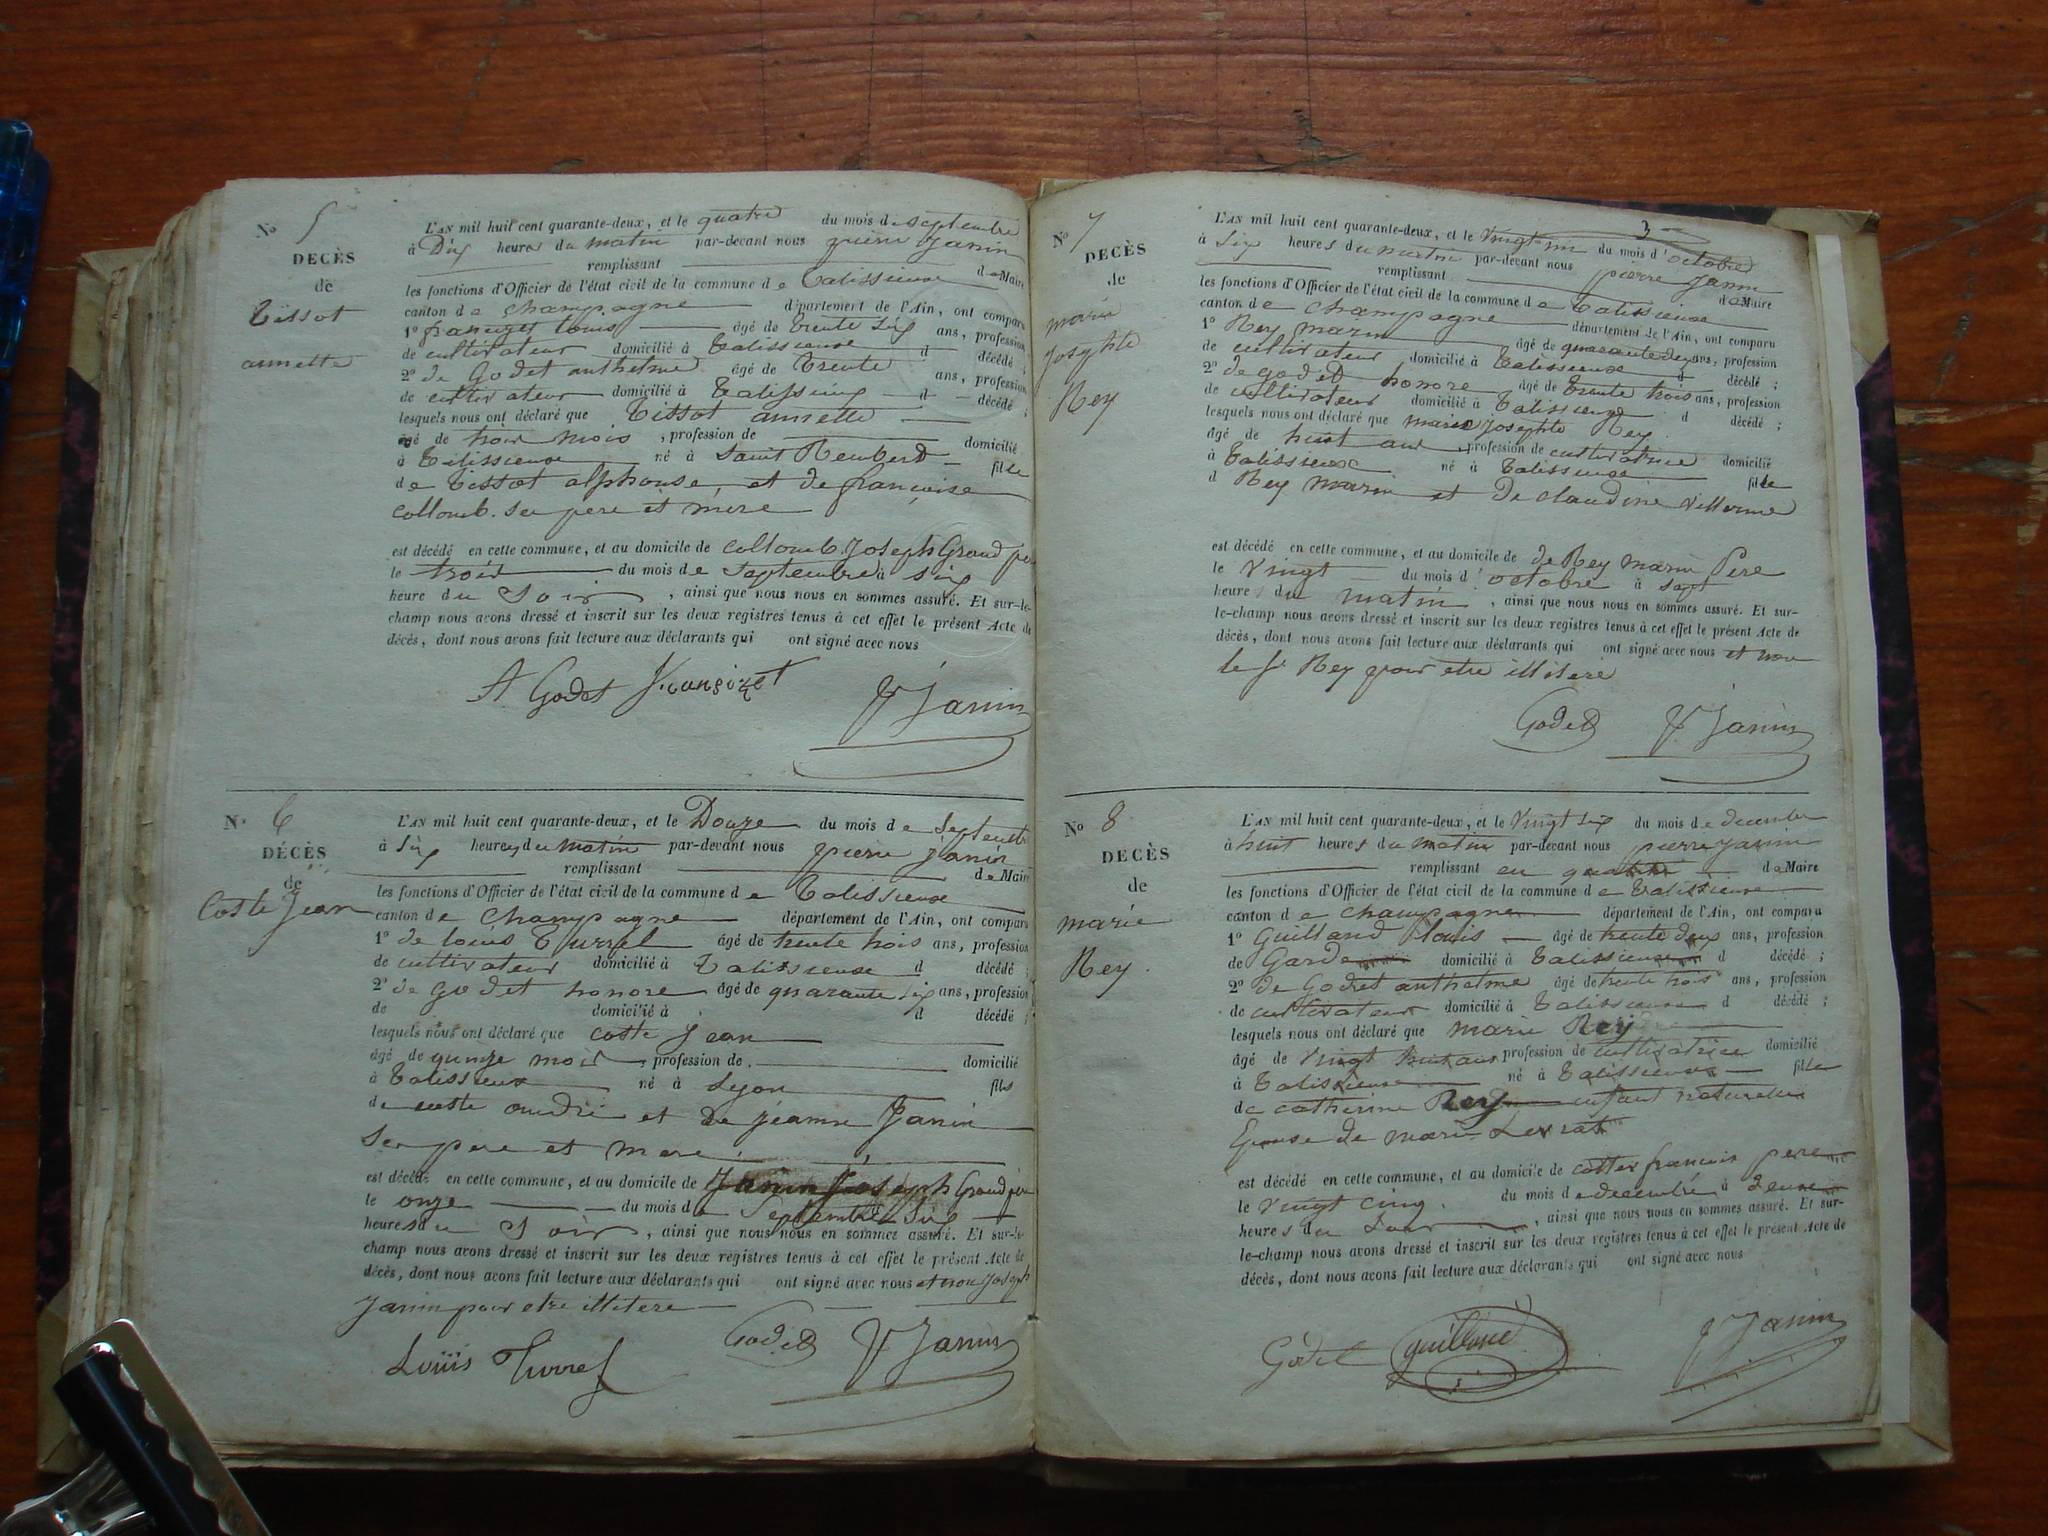 No 5
DECÈS
de
Tissot
annette
L'AN mil huit cent quarante-deux, et le quatre du mois de septembre
à Dix heures du matin par-devant nous pierre Janin
remplissant de Maire
les fonctions d'Officier de l'état civil de la commune de Talissieux
canton de champagne département de l'Ain, ont comparu
1º louis âgé de trente six ans, profession
de cultivateur domicilié à Talissieux d décédé ;
2º de Godet anthelme âgé de trente ans, profession
de cultivateur domicilié à d décédé ;
lesquels nous ont déclaré que Tissot annette
âgé de trois mois , profession de domicilié
à né à Saint Rembert fille
de Tissot alphonse, et de francoise
collomb. ses pere et mere
est décédé en cette commune, et au domicile de collomb Joseph Grand pere
le trois du mois de Septembre à six
heure du Soir , ainsi que nous nous en sommes assuré. Et sur-le-
champ nous avons dressé et inscrit sur les deux registres tenus à cet effet le présent Acte de
décès, dont nous avons fait lecture aux déclarants qui ont signé avec nous
A Godet P Janin
No 6
DÉCÈS
de
Coste Jean
L'AN mil huit cent quarante-deux, et le Douze du mois de Septembre
à Six heures du matin par-devant nous pierre Janin
remplissant de Maire
les fonctions d'Officier de l'état civil de la commune de Talissieux
canton de Champagne département de l'Ain, ont comparu
1º de louis Turrel âgé de trente trois ans, profession
de cultivateur domicilié à Talissieux d décédé ;
2º de Godet honore âgé de quarante six ans, profession
de domicilié à d décédé ;
lesquels nous ont déclaré que coste jean
âgé de quinze mois , profession de domicilié
à Talissieux né à Lyon fils
de coste andré et de jeanne Janin
ses pere et mere
est décédé en cette commune, et au domicile de Janin Joseph Grand pere
le onze du mois de Septembre Six
heures du Soir , ainsi que nous nous en sommes assuré. Et sur-le-
champ nous avons dressé et inscrit sur les deux registres tenus à cet effet le présent Acte de
décès, dont nous avons fait lecture aux déclarants qui ont signé avec nous et non Joseph
Janin pour etre illitere
Louis Turrel Godet P Janin
3
No 7
DECÈS
de
marie
Josephte
Rey
L'AN mil huit cent quarante-deux, et le vingt un du mois d'octobre
à Six heures du matin par-devant nous pierre Janin
remplissant de Maire
les fonctions d'Officier de l'état civil de la commune de Talissieux
canton de champagne département de l'Ain, ont comparu
1º Rey marin âgé de quarante deux ans, profession
de cultivateur domicilié à Talissieux d décédé ;
2º de godet honore âgé de trente trois ans, profession
de cultivateur domicilié à Talissieux d décédé ;
lesquels nous ont déclaré que marie josephte Rey
âgé de huit ans , profession de cultivatrice domicilié
à Talissieux né à Talissieux fille
d Rey marin et De claudine Villerme
est décédé en cette commune, et au domicile de de Rey marin Pere
le vingt du mois d'octobre à sept
heures du matin , ainsi que nous nous en sommes assuré. Et sur-
le-champ nous avons dressé et inscrit sur les deux registres tenus à cet effet le présent Acte de
décès, dont nous avons fait lecture aux déclarants qui ont signé avec nous et non
le sr Rey pour etre illitere
Godet P Janin
No 8
DECÈS
de
marie
Rey.
L'AN mil huit cent quarante-deux, et le vingt six du mois de decembre
à huit heures du matin par-devant nous pierre janin
remplissant en de Maire
les fonctions d'Officier de l'état civil de la commune de Talissieux
canton de champagne département de l'Ain, ont comparu
1º Guilland louis âgé de trente deux ans, profession
de Garde domicilié à Talissieux d décédé ;
2º de Godet anthelme âgé de trente trois ans, profession
de cultivateur domicilié à Talissieux d décédé ;
lesquels nous ont déclaré que marie Rey
âgé de vingt huit ans profession de cultivatrice domicilié
à Talissieux né à Talissieux fille
de catherine Rey enfant naturelle
Epouse de marin Levrat
est décédé en cette commune, et au domicile de francois pere
le vingt cinq. du mois de decembre à
heures du , ainsi que nous nous en sommes assuré. Et sur-
le-champ nous avons dressé et inscrit sur les deux registres tenus à cet effet le présent Acte de
décès, dont nous avons fait lecture aux déclarants qui ont signé avec nous
Godet P Janin